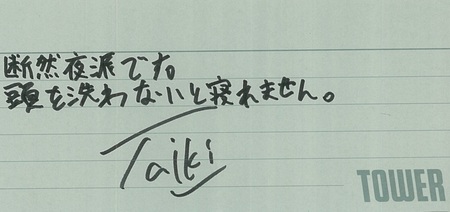 断然夜派です。
頭を洗わないと寝れません。
Taiki
TOWER